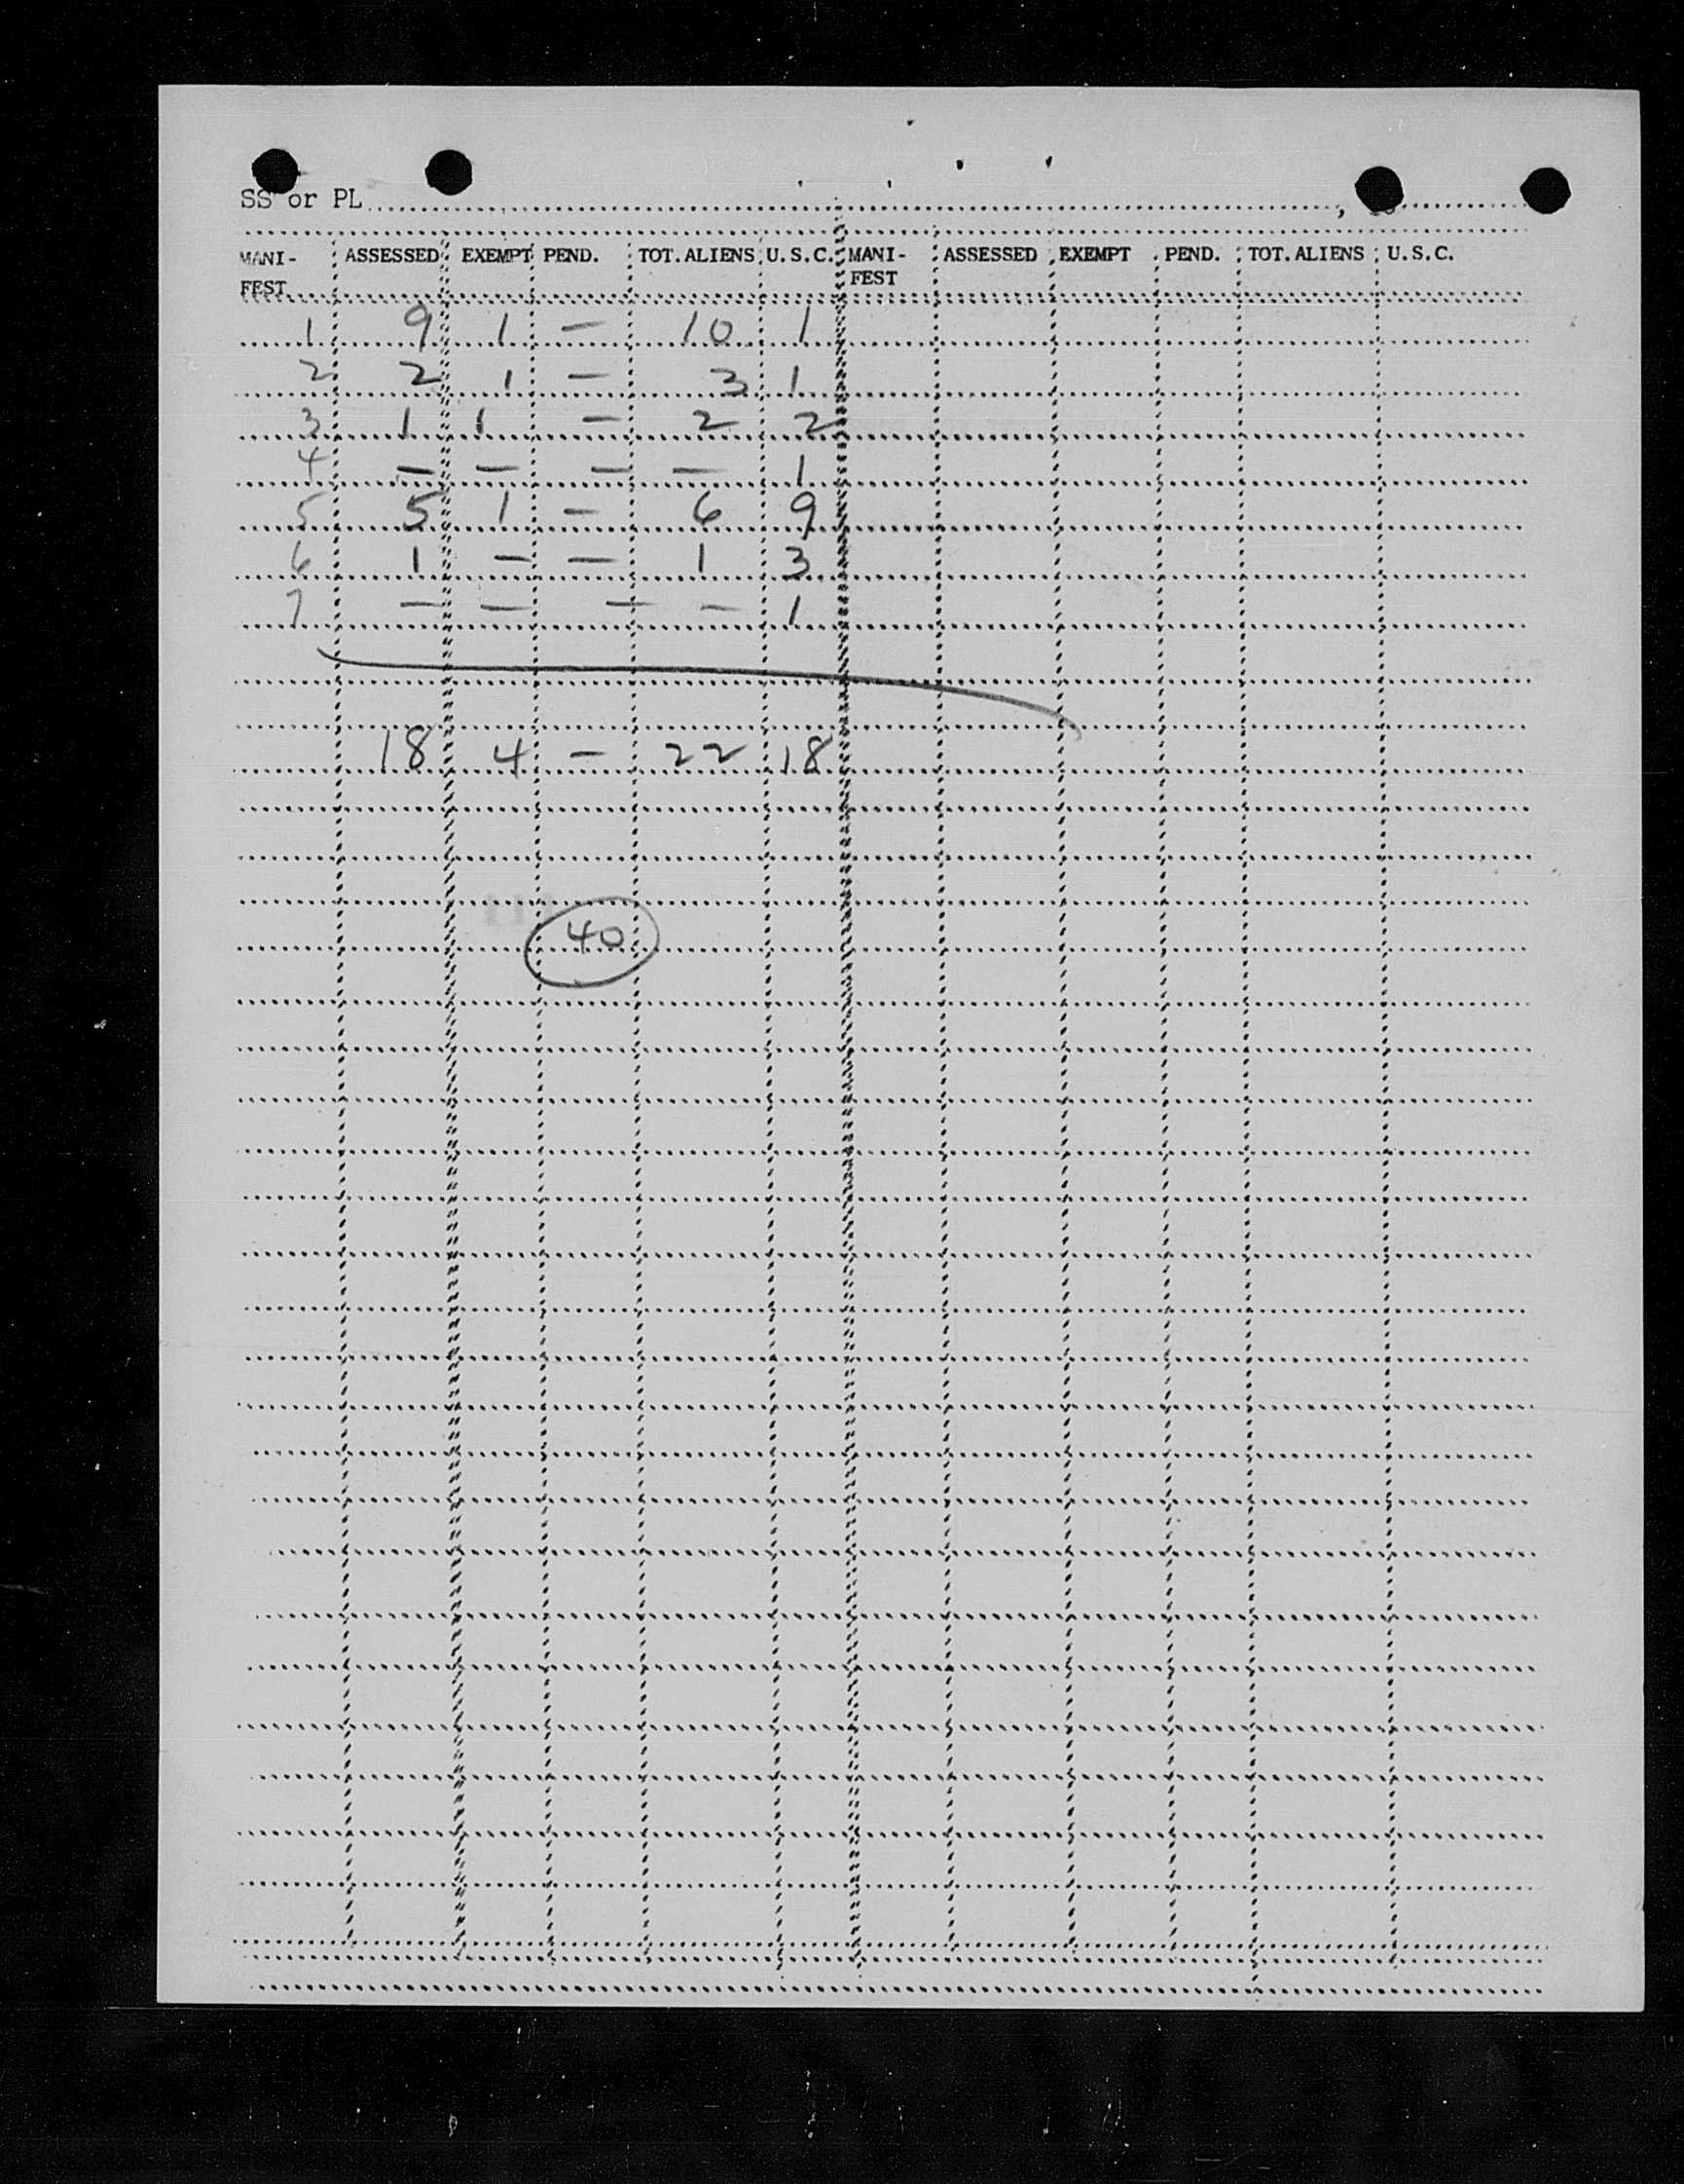 SS or PL
MANI- ASSESSED EXEMPT PEND. TOT. ALIENS U.S.C. MANI- ASSESSED EXEMPT PEND. TOT. ALIENS U.S.C.
FEST FEST
1 9 1 — 10 1
2 2 1 — 3 1
3 1 1 — 2 2
4 — — — — 1
5 5 1 — 6 9
6 1 — — 1 3
7 — — — — 1
18 4 — 22 18
40